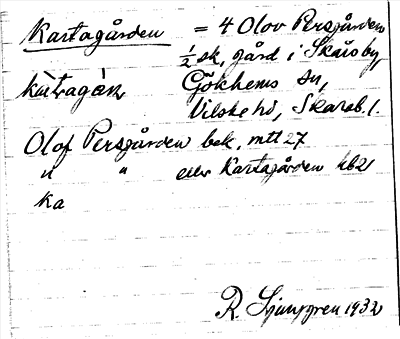 Kartagården = 4 Olov Persgården
1/2 sk, gård i Skårsby,
Gökhems sn,
Vilske hd, Skarab. l.
Olof Persgården bek. mtl 27
" " eller Kartagården hb21
Ka
R. Ljunggren 1932